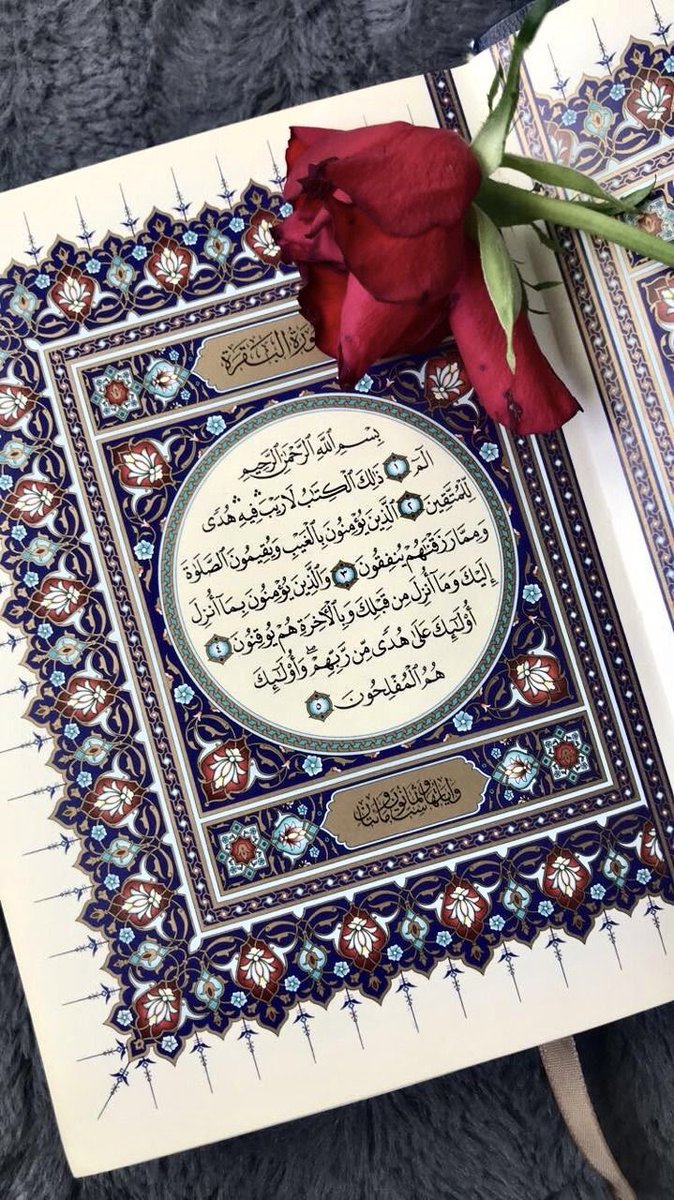 سُورَةُ البَقَرَة
بِسْمِ ٱللَّهِ ٱلرَّحْمَٰنِ ٱلرَّحِيمِ
الٓمٓ ١ ذَٰلِكَ ٱلْكِتَٰبُ لَا رَيْبَ ۛ فِيهِ ۛ هُدًى
لِّلْمُتَّقِينَ ٢ ٱلَّذِينَ يُؤْمِنُونَ بِٱلْغَيْبِ وَيُقِيمُونَ ٱلصَّلَوٰةَ
وَمِمَّا رَزَقْنَٰهُمْ يُنفِقُونَ ٣ وَٱلَّذِينَ يُؤْمِنُونَ بِمَآ أُنزِلَ
إِلَيْكَ وَمَآ أُنزِلَ مِن قَبْلِكَ وَبِٱلْءَاخِرَةِ هُمْ يُوقِنُونَ ٤
أُو۟لَٰٓئِكَ عَلَىٰ هُدًى مِّن رَّبِّهِمْ ۖ وَأُو۟لَٰٓئِكَ
هُمُ ٱلْمُفْلِحُونَ ٥
وآياتها ست وثمانون ومائتان